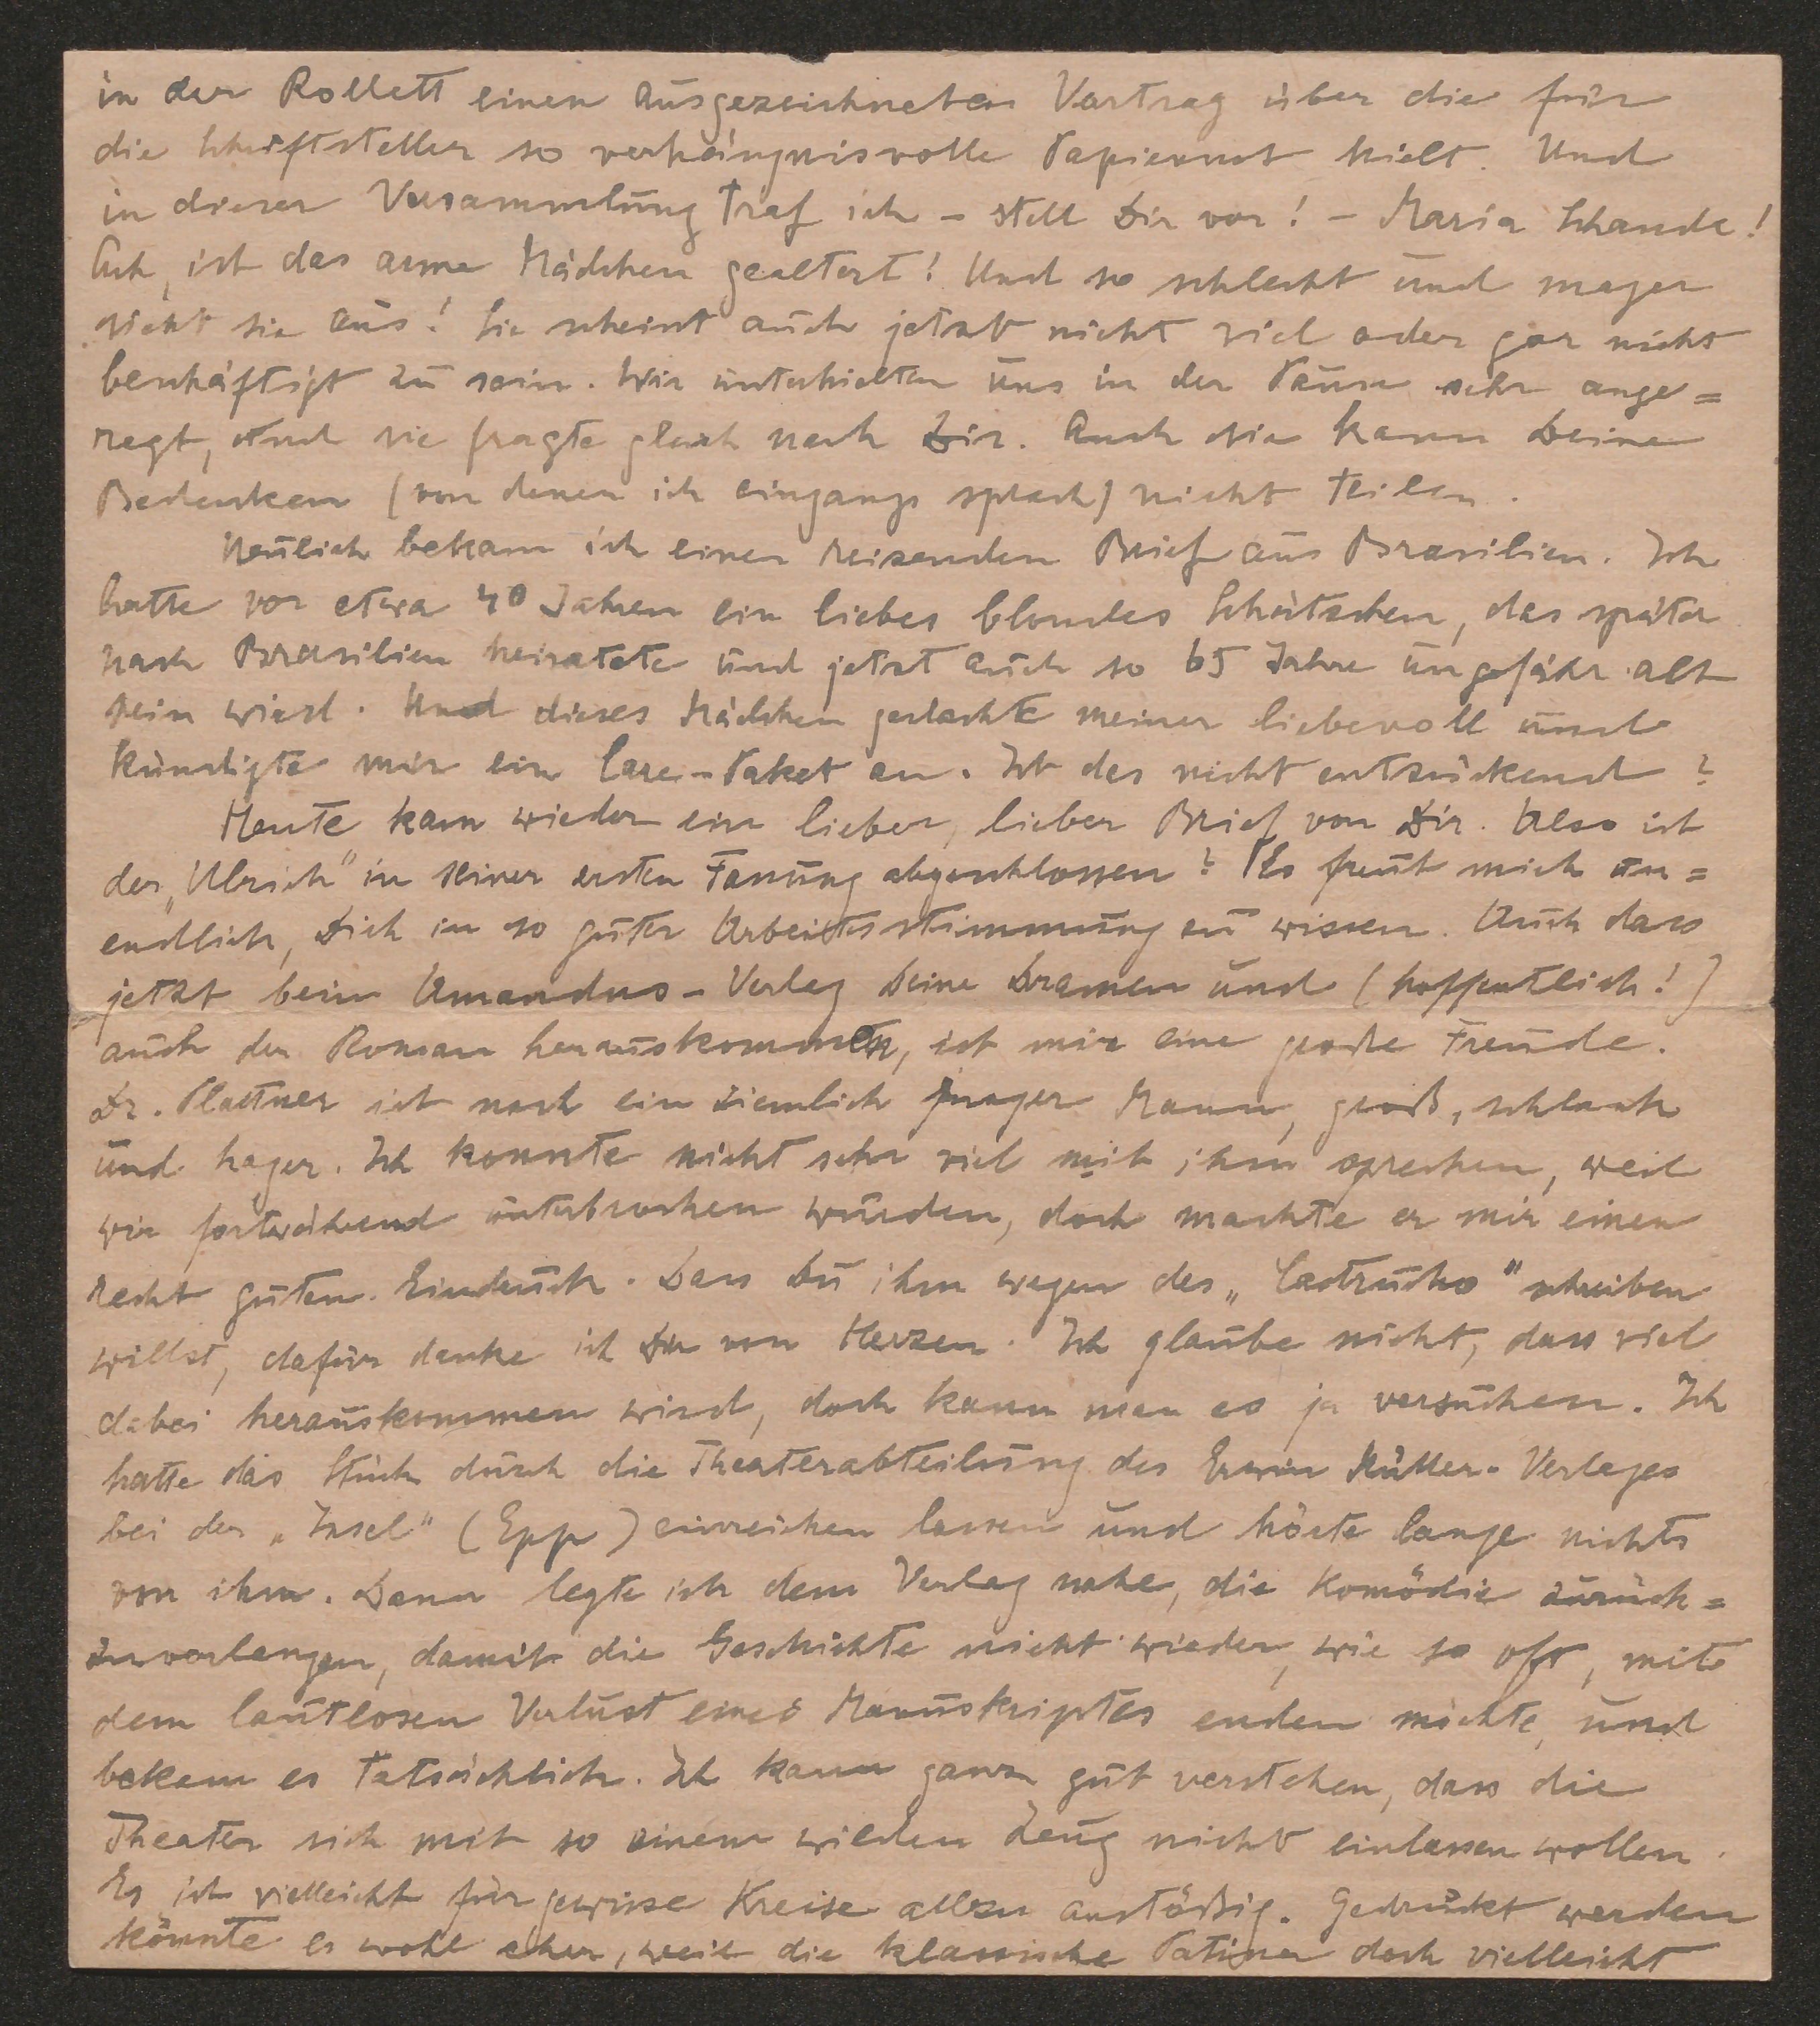 in der Rollett einen ausgezeichneten Vortrag über die für
die Schriftsteller so verhängnisvolle Papiernot hielt. Und
in dieser Versammlung traf ich – stell Dir vor! – Maria Schande!
Ach, ist das arme Mädchen gealtert! Und so schlecht und mager
sieht sie aus! Sie scheint auch jetzt nicht viel oder gar nicht
beschäftigt zu sein. Wir unterhielten uns in der Pause sehr ange=
regt, und sie fragte gleich nach Dir. Auch sie kann Deine
Bedenken (von denen ich eingangs sprach) nicht teilen.
Neulich bekam ich einen reizenden Brief aus Brasilien. Ich
hatte vor etwa 40 Jahren ein liebes blondes Schätzchen, das später
nach Brasilien heiratete und jetzt auch so 65 Jahre ungefähr alt
sein wird. Und dieses Mädchen gedachte meiner liebevoll und
kündigte mir ein Care-Paket an. Ist das nicht entzückend?
Heute kam wieder ein lieber, lieber Brief von Dir. Also ist
der „Ulrich" in seiner ersten Fassung abgeschlossen? Es freut mich un=
endlich, Dich in so guter Arbeitsstimmung zu wissen. Auch dass
jetzt beim Amandus-Verlag Deine Dramen und (hoffentlich!)
auch der Roman herauskommen, ist mir eine große Freude.
Dr. Plattner ist noch ein ziemlich junger Mann, groß, schlank
und hager. Ich konnte nicht sehr viel mit ihm sprechen, weil
wir fortwährend unterbrochen wurden, doch machte er mir einen
recht guten Eindruck. Dass Du ihm wegen des „Castrucho" schreiben
willst, dafür danke ich Dir von Herzen. Ich glaube nicht, dass viel
dabei herauskommen wird, doch kann man es ja versuchen. Ich
hatte das Stück durch die Theaterabteilung des Erwin Müller-Verlages
bei der „Insel" (Epp) einreichen lassen und hörte lange nichts
von ihm. Dann legte ich dem Verlag nahe, die Komödie zurück=
zuverlangen, damit die Geschichte nicht wieder, wie so oft, mit
dem lautlosen Verlust eines Manuskriptes enden möchte, und
bekam es tatsächlich. Ich kann ganz gut verstehen, dass die
Theater sich mit so einem wilden Zeug nicht einlassen wollen.
Es ist vielleicht für gewisse Kreise allzu anstößig. Gedruckt werden
könnte es wohl eher, weil die klassische Patina doch vielleicht